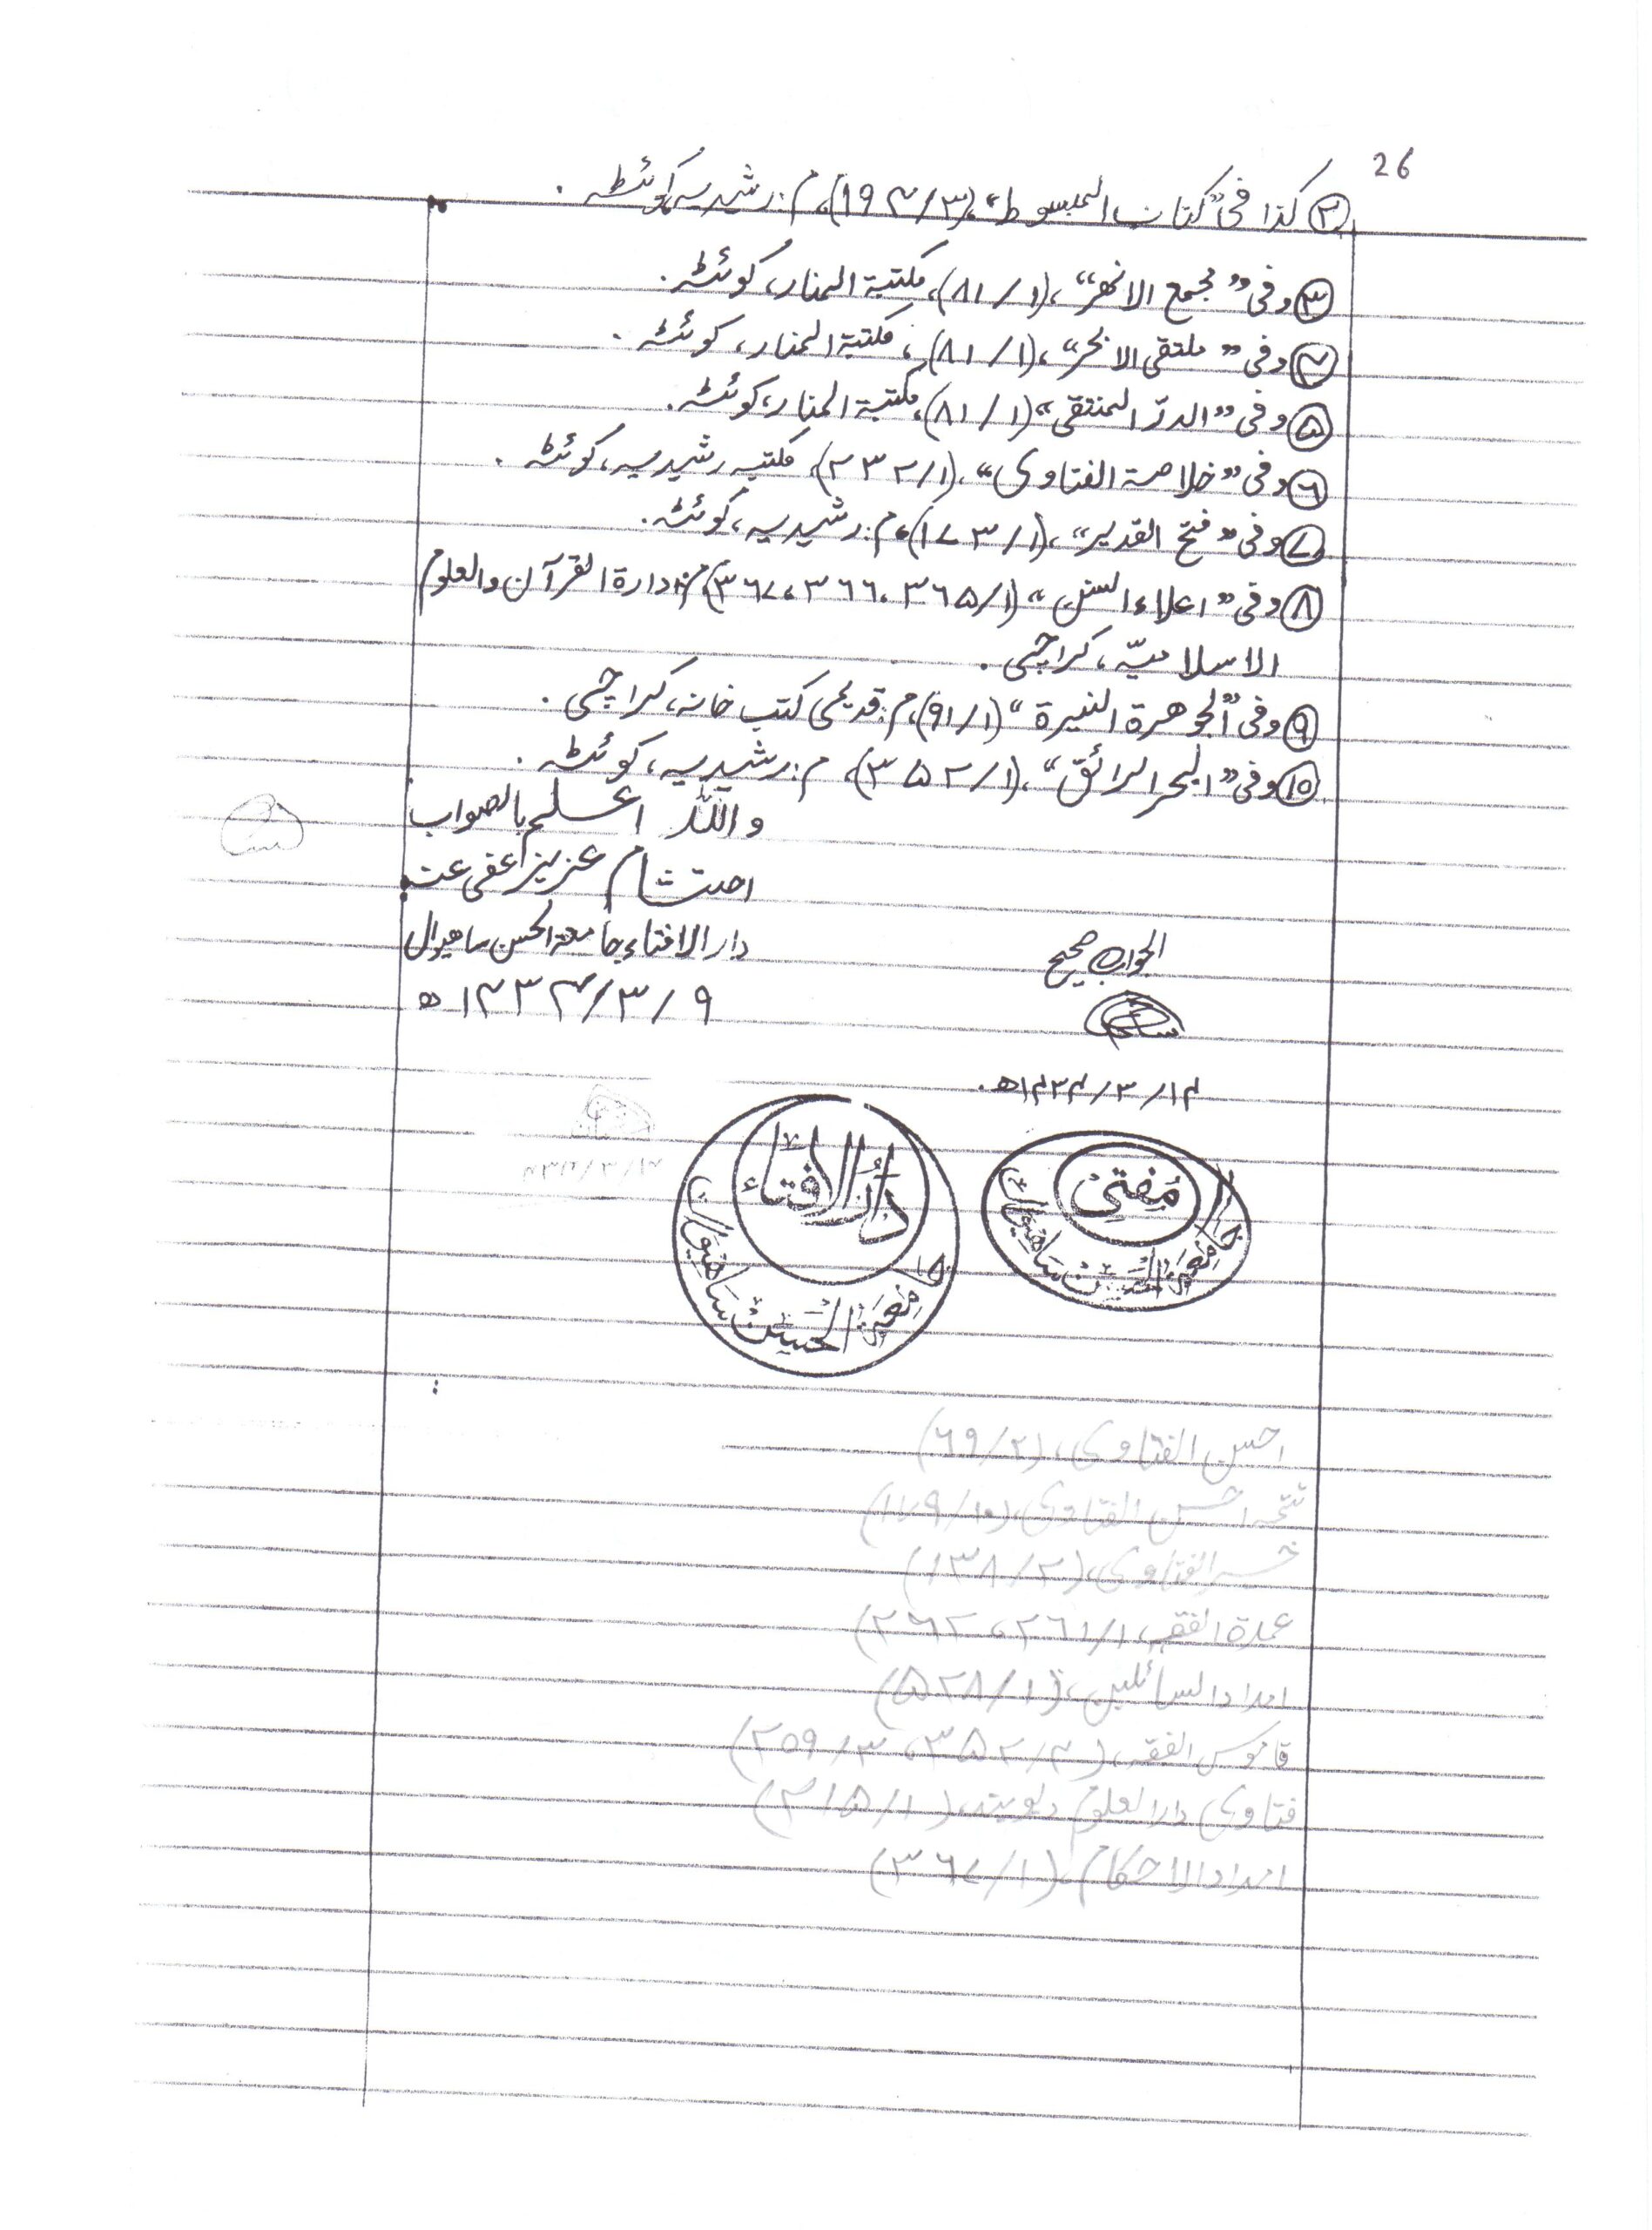 26
۲ کذا فی "کتاب المبسوط"، (۱۹۴/۳)، م: رشیدیہ کوئٹہ.
۳ وفی "مجمع الانھر"، (۸۱/۱)، مکتبۃ المنار، کوئٹہ.
۴ وفی "ملتقی الابحر"، (۸۱/۱)، مکتبۃ المنار، کوئٹہ.
۵ وفی "الدرّ المنتقی" (۸۱/۱)، مکتبۃ المنار، کوئٹہ.
۶ وفی "خلاصۃ الفتاوی"، (۲۳۲/۱)، مکتبہ رشیدیہ، کوئٹہ.
۷ وفی "فتح القدیر"، (۱۷۳/۱)، م: رشیدیہ، کوئٹہ.
۸ وفی "اعلاء السنن" (۳۶۷،۳۶۶،۳۶۵/۱) م: ادارۃ القرآن والعلوم
الاسلامیّہ، کراچی.
۹ وفی "الجوھرۃ النیرۃ" (۹۱/۱)، م: قدیمی کتب خانہ، کراچی.
۱۰ وفی "البحر الرائق"، (۳۵۲/۱)، م: رشیدیہ، کوئٹہ.
واللہ اعلم بالصواب
احتشام عزیز عفی عنہ
دار الافتاء جامعۃ الحسن ساھیوال
۹/۳/۱۴۳۴ھ
الجواب صحیح
۱۴/۳/۱۴۳۴ھ.
دَارُ الافتاء
جامعۃ الحسن ساھیوال
مُفتی
جامعۃ الحسن ساھیوال
احسن الفتاوی، (۶۹/۲)
تتمہ احسن الفتاوی،
خیر الفتاوی، (۱۳۸/۲)
عمدۃ الفقہ، ۲۶۲،۲۶۱/۱)
امداد السائلین، (۵۲۸/۱)
قاموس الفقہ، (۳۵۲/۴، ۲۵۹/۳)
فتاوی دار العلوم دیوبند، (۳۱۵/۱)
امداد الاحکام، (۳۶۷/۱)